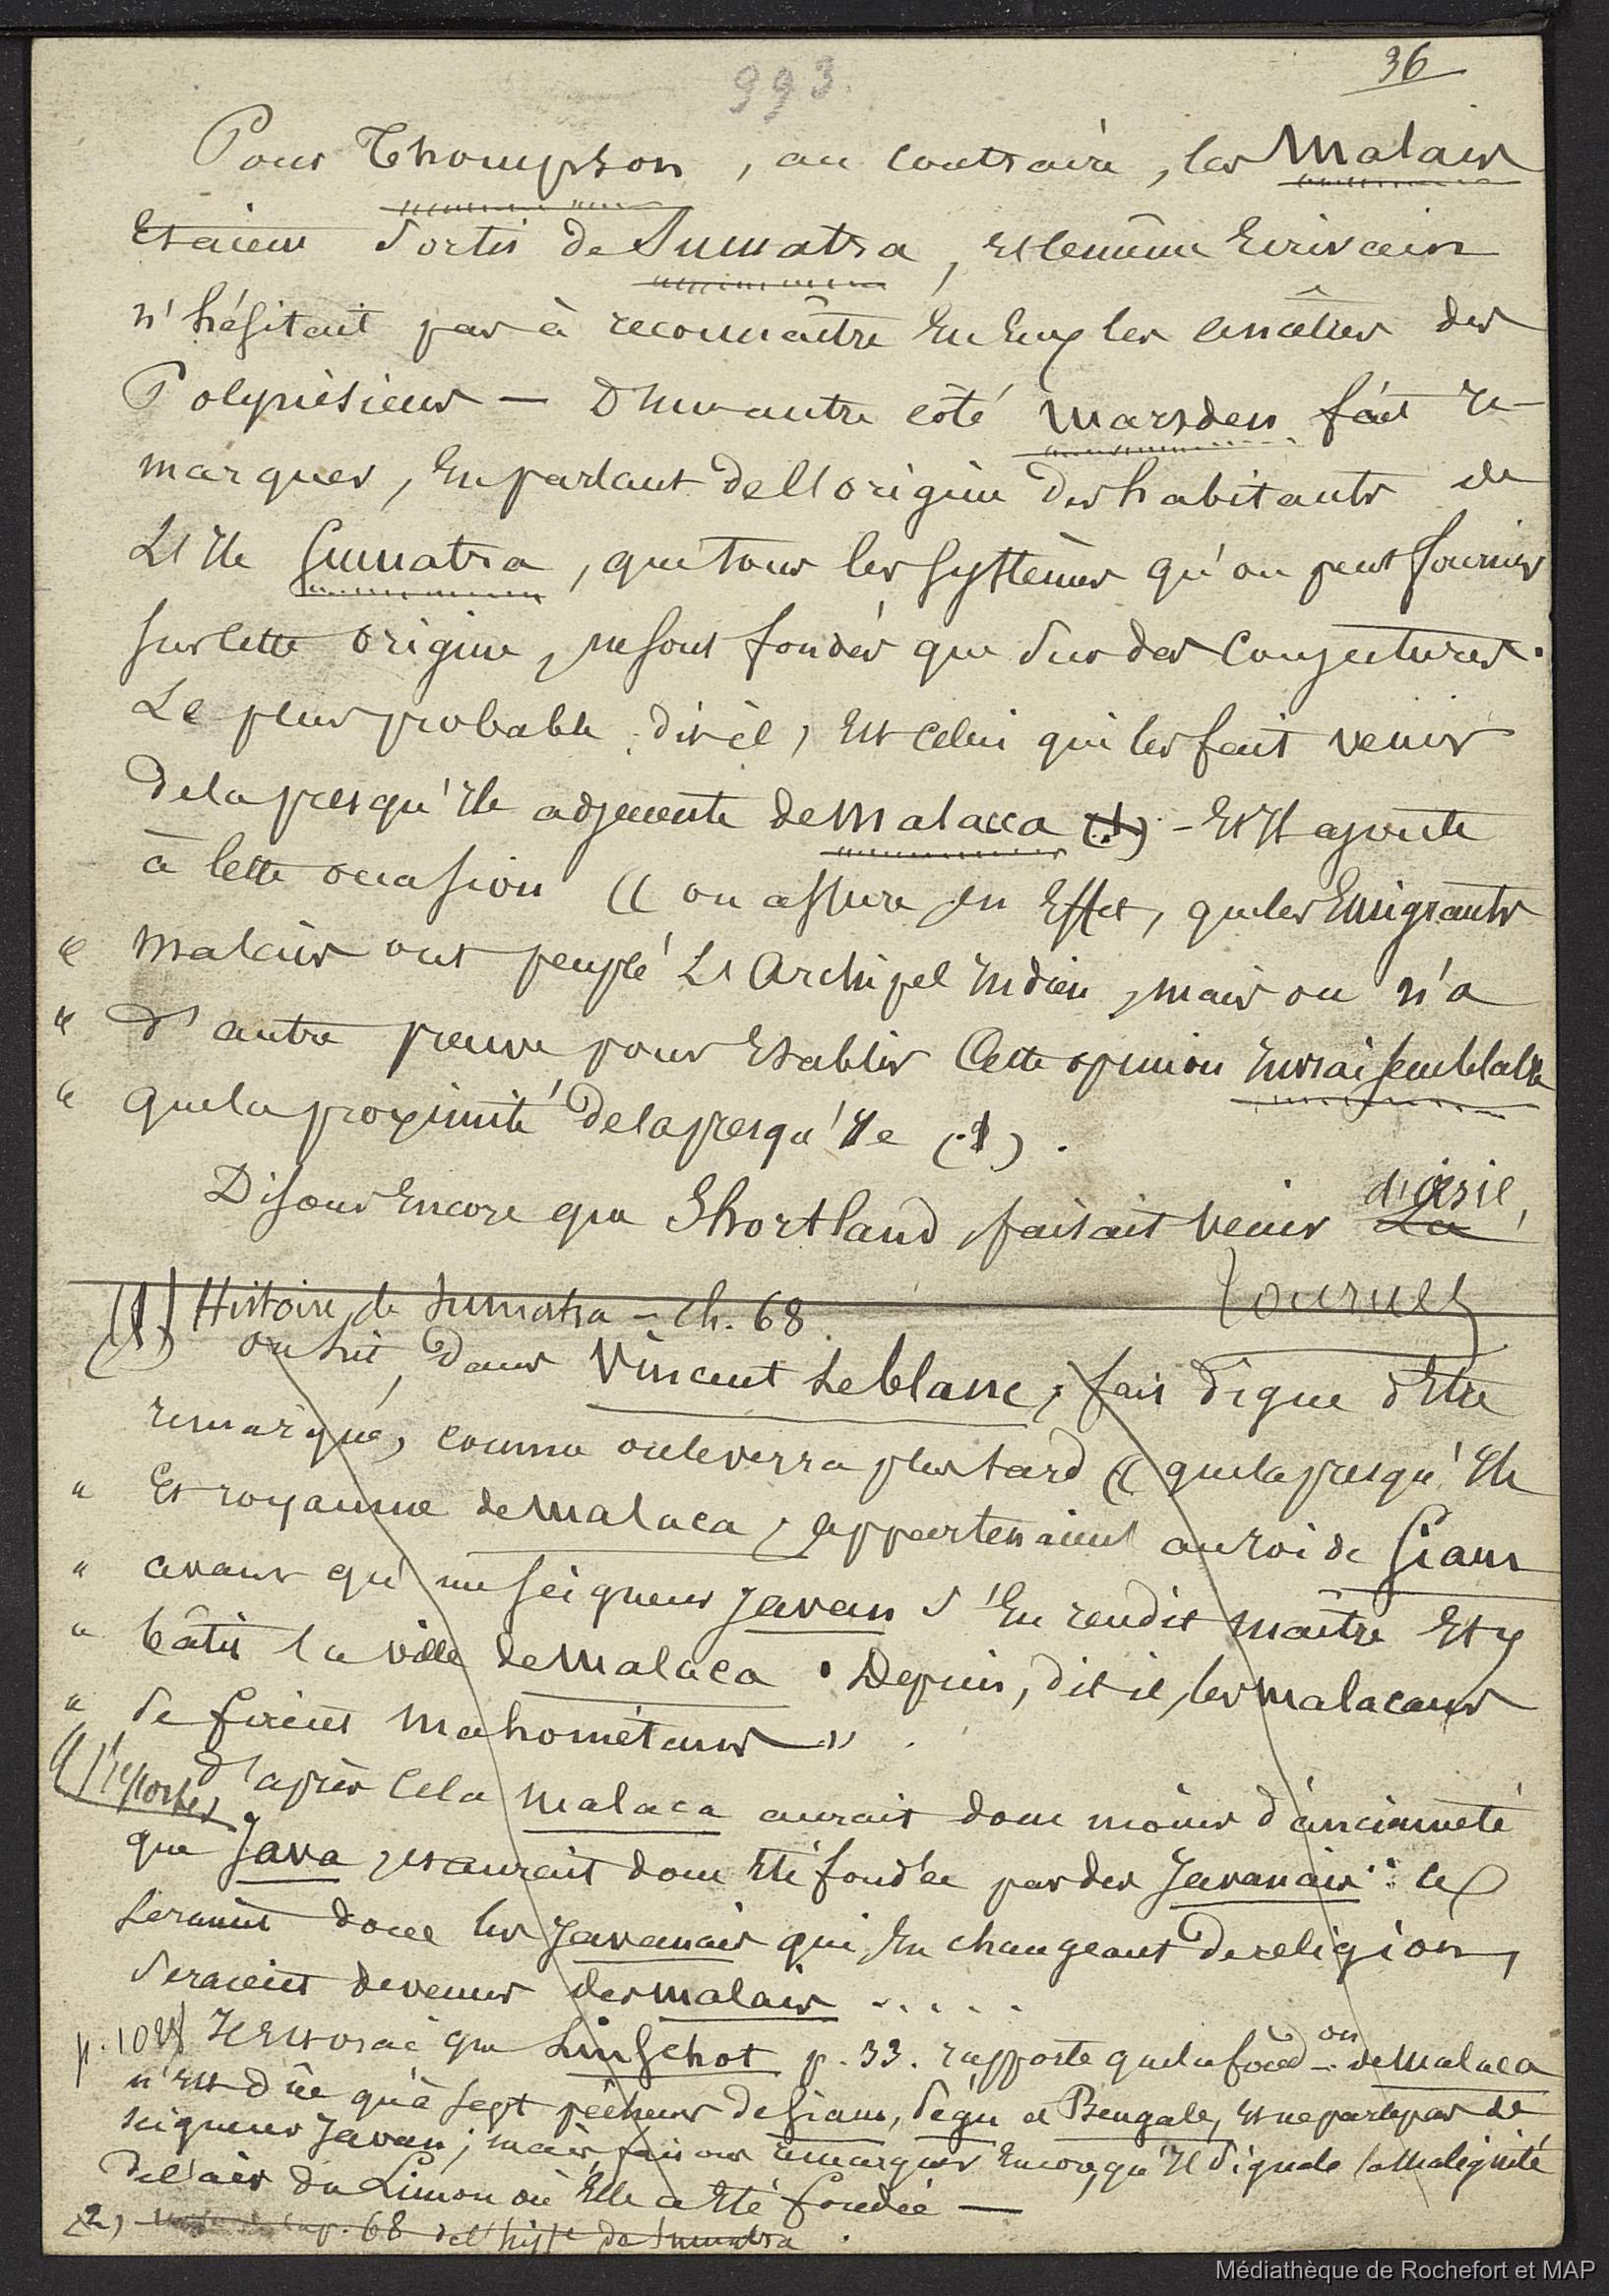 993.
36
Pour Thompson, au contraire, les Malais
Etaient Sortis de Sumatra, et le même Ecrivain
n'hésitait pas à reconnaître En Eux les ancêtres des
Polynésiens — D'un autre côté Marsden fait re-
marquer, En parlant de l'origine des habitants de
L'Ile Sumatra, que tous les Systèmes qu'on peut fournir
sur cette origine, ne sont fondés que sur des Conjectures.
Le plus probable, dit il, Est celui qui les fait venir
de la presqu'Ile adjacente de Malacca (1) - Et Il ajoute
à cette occasion « on assure en Effet, que les Emigrants
« Malais ont peuplé L'Archipel Indien, mais on n'a
« d'autre preuve pour Etablir Cette opinion Invraisemblable
« que la proximité de la presqu'Ile (1).
Disons Encore que Shortland, faisait venir La d'Asie,
Tournez
(1) Histoire de Sumatra - ch. 68
(1) on lit, dans Vincent Leblanc, fait digne d'Etre
remarqué, comme on le verra plus tard « que la presqu'Ile
« Et royaume de Malaca, appartenaient au roi de Siam
« avant qu'un Seigneur Javan S'En rendit Maître Et y
« bâtit la ville de Malaca. Depuis, dit il, les Malacans
« Se firent Mahométans ».
D'après Cela Malaca aurait donc moins d'ancienneté
que Java, et aurait donc Eté fondée par des Javanais : ce
Seraient donc les Javanais qui, En changeant de religion,
Seraient devenus des Malais . . . . .
p. 10 Il Est vrai que Linschot p. 33. rapporte que la fond-on de Malaca
n'Est dûe qu'à Sept pêcheurs de Siam, Pégu et Bengale, et ne parle pas de
seigneur Javan; mais, faisons remarquer Encore, qu'Il Signale la Malignité
de l'air du Limon où Elle a Eté fondée —
(2) p. 68 de l'histe de Sumatra.
Médiathèque de Rochefort et MAP